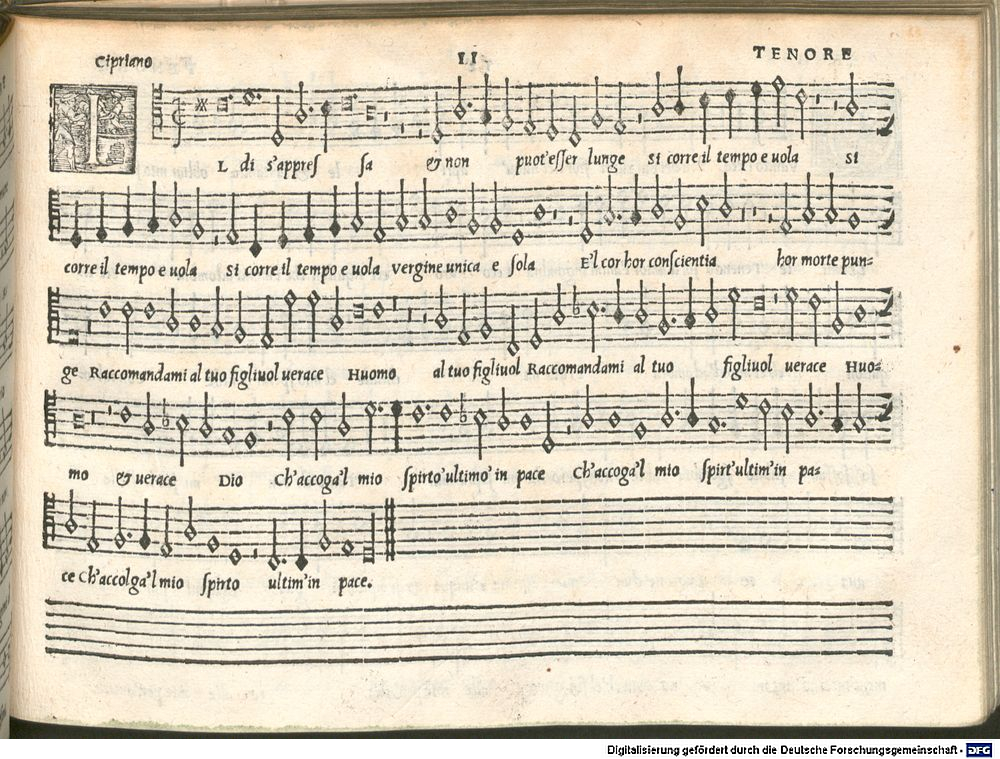 Cipriano 11 TENORE
IL di s'appres sa & non puot'esser lunge si corre il tempo e uola si
corre il tempo e uola si corre il tempo e uola vergine unica e sola E'l cor hor conscientia hor morte pun-
ge Raccomandami al tuo figliuol uerace Huomo al tuo figliuol Raccomandami al tuo figliuol uerace Huo-
mo & uerace Dio Ch'accoga'l mio spirto'ultimo'in pace Ch'accoga'l mio spirt'ultim'in pa-
ce Ch'accolga'l mio spirto ultim'in pace.
Digitalisierung gefördert durch die Deutsche Forschungsgemeinschaft - DFG